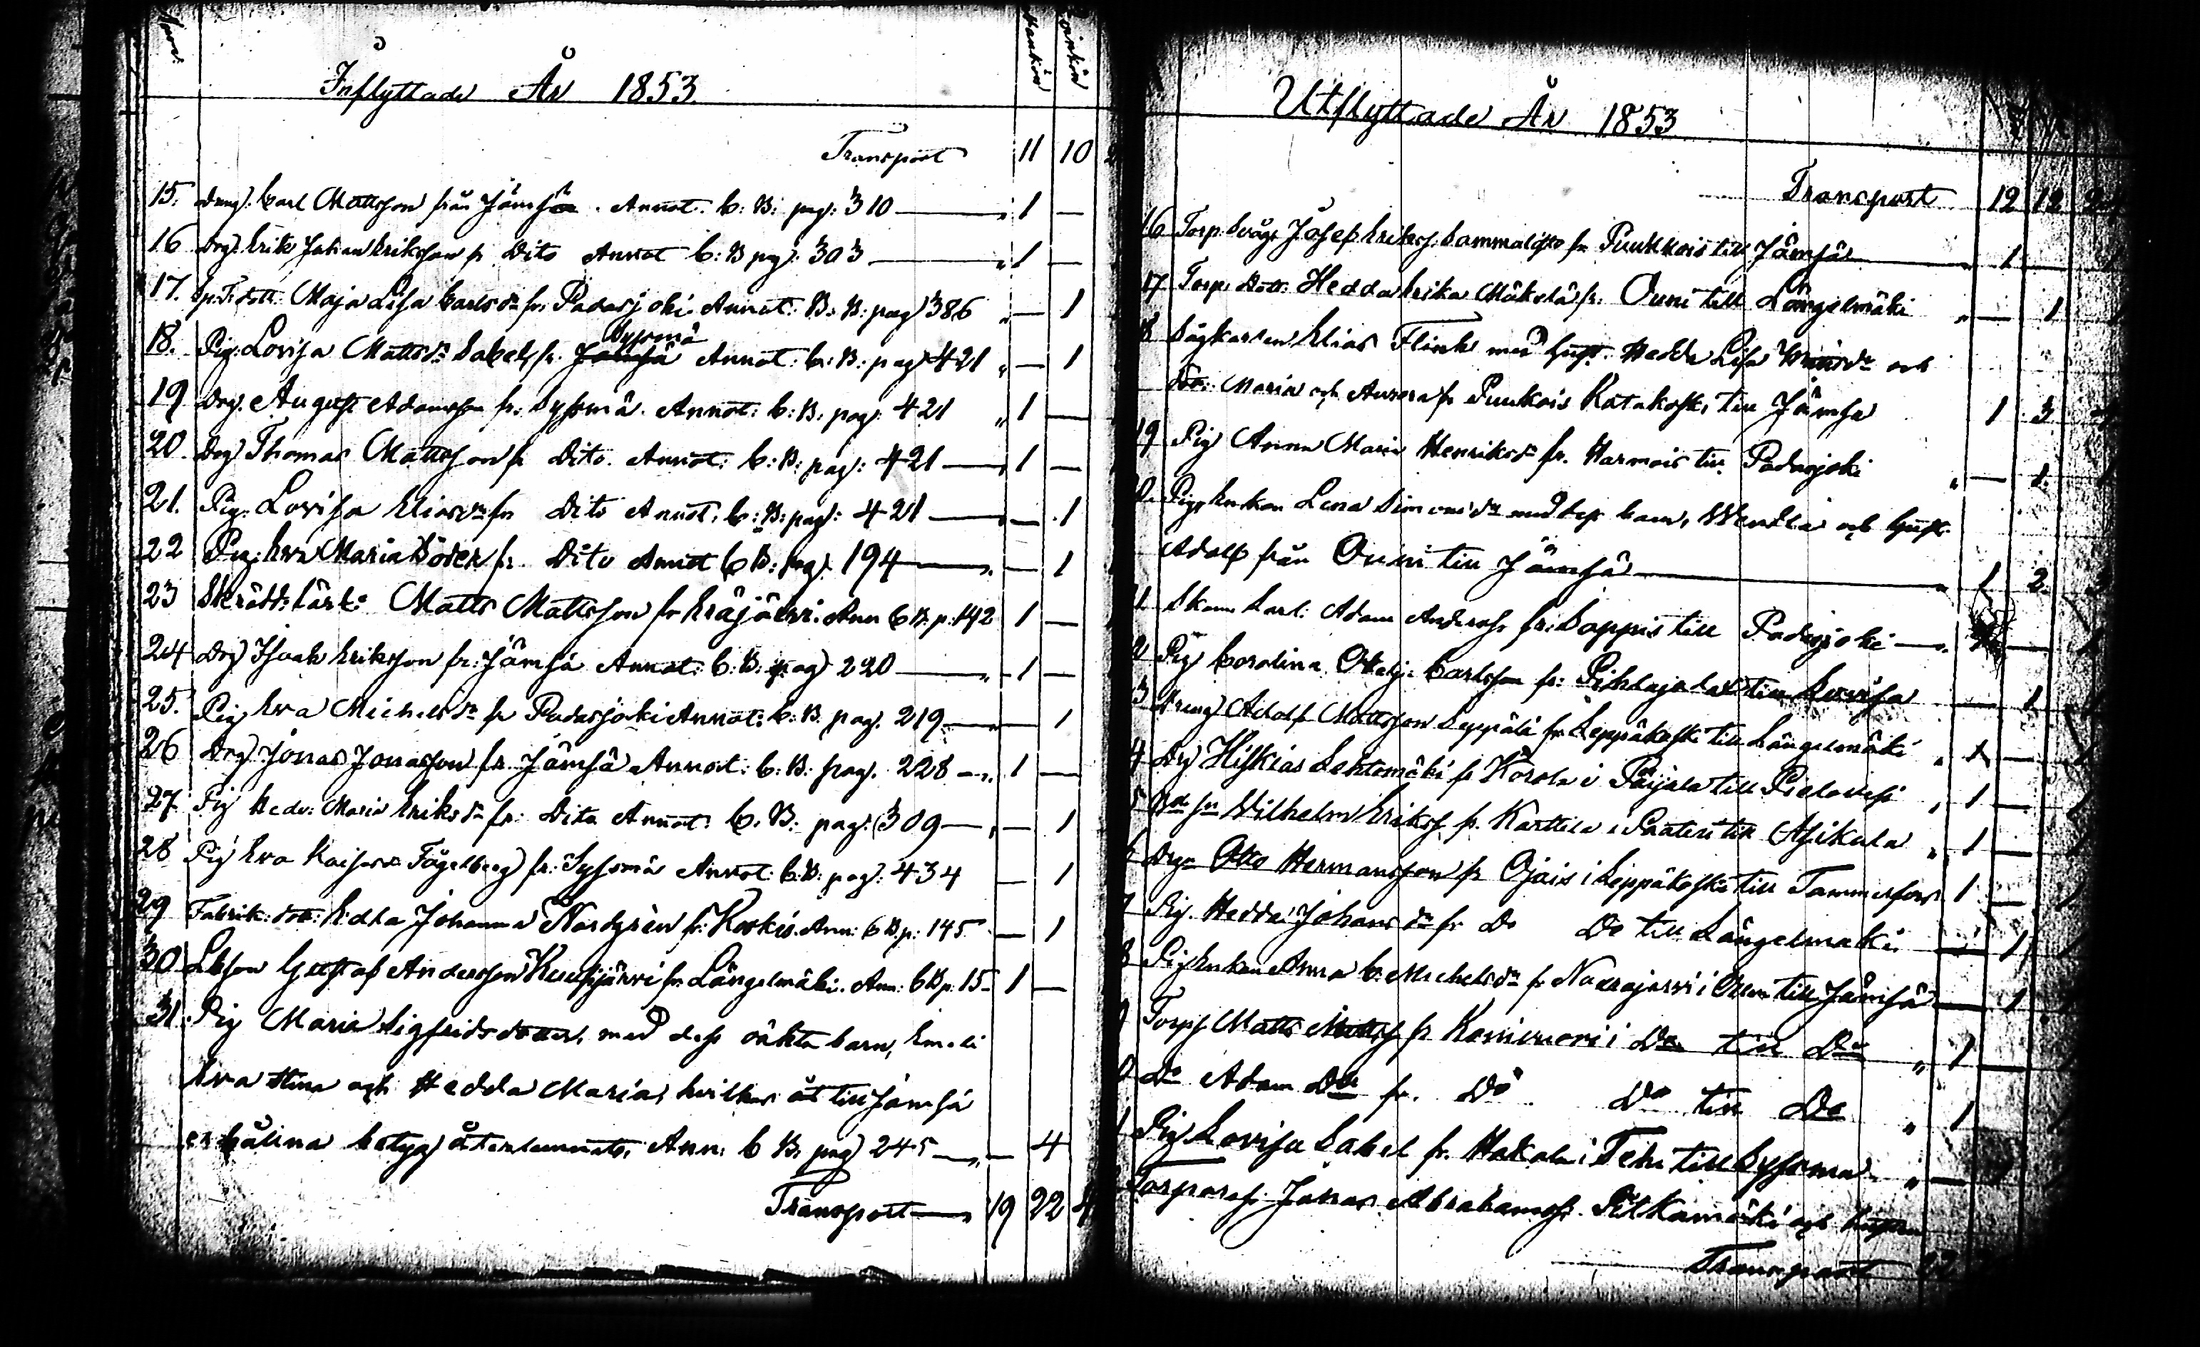 Mankön
Qvinkön
Inflyttade År 1853
Transport 11 10
15. Dreng. Carl Mattsson från Jämsä. Annot. C: B: pag: 310 — 1 —
16 Drg. Erik Johan Eriksson fr. Dito Annot C: B pag: 303 — 1 —
17. Maja Lisa Carlsdr fr. Padasjoki Annot: C: B: pag 386 — 1
18. Pig. Lovisa Mattsdr Sabel, fr. Jämsä Sysmä Annot: C: B: pag 421 — 1
19 Drg. August Adamsson fr. Sysmä. Annot: C: B: pag: 421 1 —
20. Drg Thomas Mattsson fr Dito. Annot: C: B: pag: 421 — 1 —
21. Pig. Lovisa Eliasdr fr Dito Annot, C: B: pag: 421 — — 1
22 Pig. Eva Maria Söder fr. Dito Annot C B: pag. 194 — — 1
23 Skrädd:lärl: Matts Mattsson fr Eräjärvi. Ann C B. p. 142 1 —
24 Drg Isaak Eriksson fr. Jämsä Annot: C: B: pag 220 — 1 —
25. Pig Eva Michelsdr fr Padasjoki Annot: C: B. pag. 219 — — 1
26 Drg Jonas Jonasson fr. Jämsä Annot: C: B: pag. 228 — 1 —
27. Pig Hedv: Maria Eriksdr fr: Dito Annot: C. B: pag: 309 — — 1
28 Pig Eva Kajsa Fågelberg fr: Sysmä Annot: C: B: pag: 434 — 1
29 Fabrik: dott: Edla Johanna Nordgrèn fr: Koskis. Ann: C B p: 145 — 1
30 Gustaf Andersson fr. Längelmäki. Ann: C B p. 15 1 —
31. Pig Maria Sigfridsdotter, med dess oäkta barn, Emeli
Eva Stina och Hedda Maria, hvilkas åt till Jämsä
erhållna betyg återlemnats, Ann: C B: pag 245 — — 4
Transport — 19 22
Utflyttade År 1853
Transport 12 12
16 Torp. Josef Erikss. fr Puukkois till Jämsä 1
17 Torp. dott. Hedda Erika Mäkelä fr: Ouni till Längelmäki — 1
18 Sågkarlen Elias Flink med hust. Hedda Lisa och
Maria och Aurora fr Puukois Katakoski till Jämsä 1 3
19 Pig Anna Maria Henriksdr fr. Harmois till Padasjoki — 1
Pigenkan Lena Simonsdr med dess barn, Wendla och Gust.
Adolf från Ouni till Jämsä 1 2
Adam Anderss. fr: Sappis till Padasjoki —
Pig Carolina Carlsson fr: Pihlajalax till Lovisa — 1
Dreng Adolf Mattsson Seppälä fr Leppäkoski till Längelmäki 1 —
Drg Hiskias Lehtomäki fr Korola i Päijälä till Pielavesi 1 —
Wilhelm Erikss. fr. Karttila i till Asikala 1 —
Drg Otto Hermansson fr Ojais i Leppäkoski till Tammerfors 1 —
Pig. Hedda Johansdr fr Do Do till Längelmäki — 1
Pigenkan Anna C. Michelsdr fr i till Jämsä — 1
Torp Matts Mattss fr i Do till Do 1 —
Do Adam Do fr. Do Do till Do 1
Pig Lovisa Sabel fr. Hakala i Tehi till Sysmä —
Torparen Johan Abrahamss. Pitkämäki och
Transport